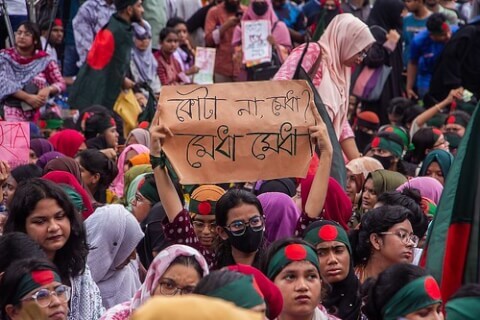 কোটা না, মেধা?
মেধা মেধা!